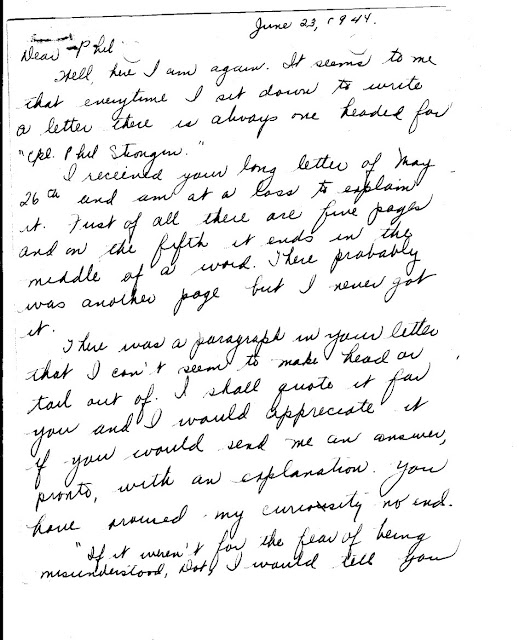 June 23, 1944.
Dear Phil
Well, here I am again. It seems to me
that everytime I sit down to write
a letter there is always one headed for
"Cpl. Phil Strongin."
I received your long letter of May
26th and am at a loss to explain
it. First of all there are five pages
and on the fifth it ends in the
middle of a word. There probably
was another page but I never got
it.
There was a paragraph in your letter
that I can't seem to make head or
tail out of. I shall quote it for
you and I would appreciate it
if you would send me an answer,
pronto, with an explanation. You
have aroused my curiosity no end.
"If it weren't for the fear of being
misunderstood, Dot, I would tell you